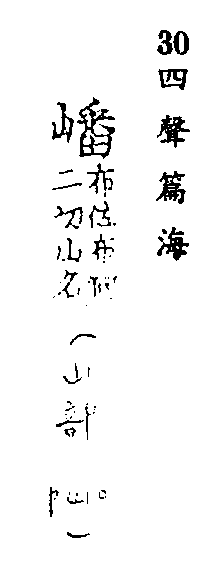 30 四聲篇海
嶓 布佐布
二切山名
(山部